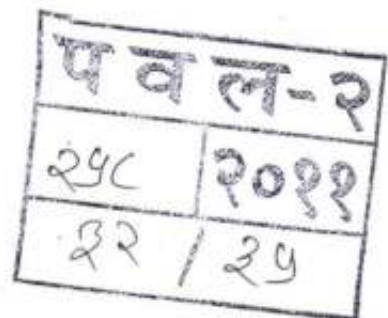 प व ल-२
२५८ २०११
३२ / ३५